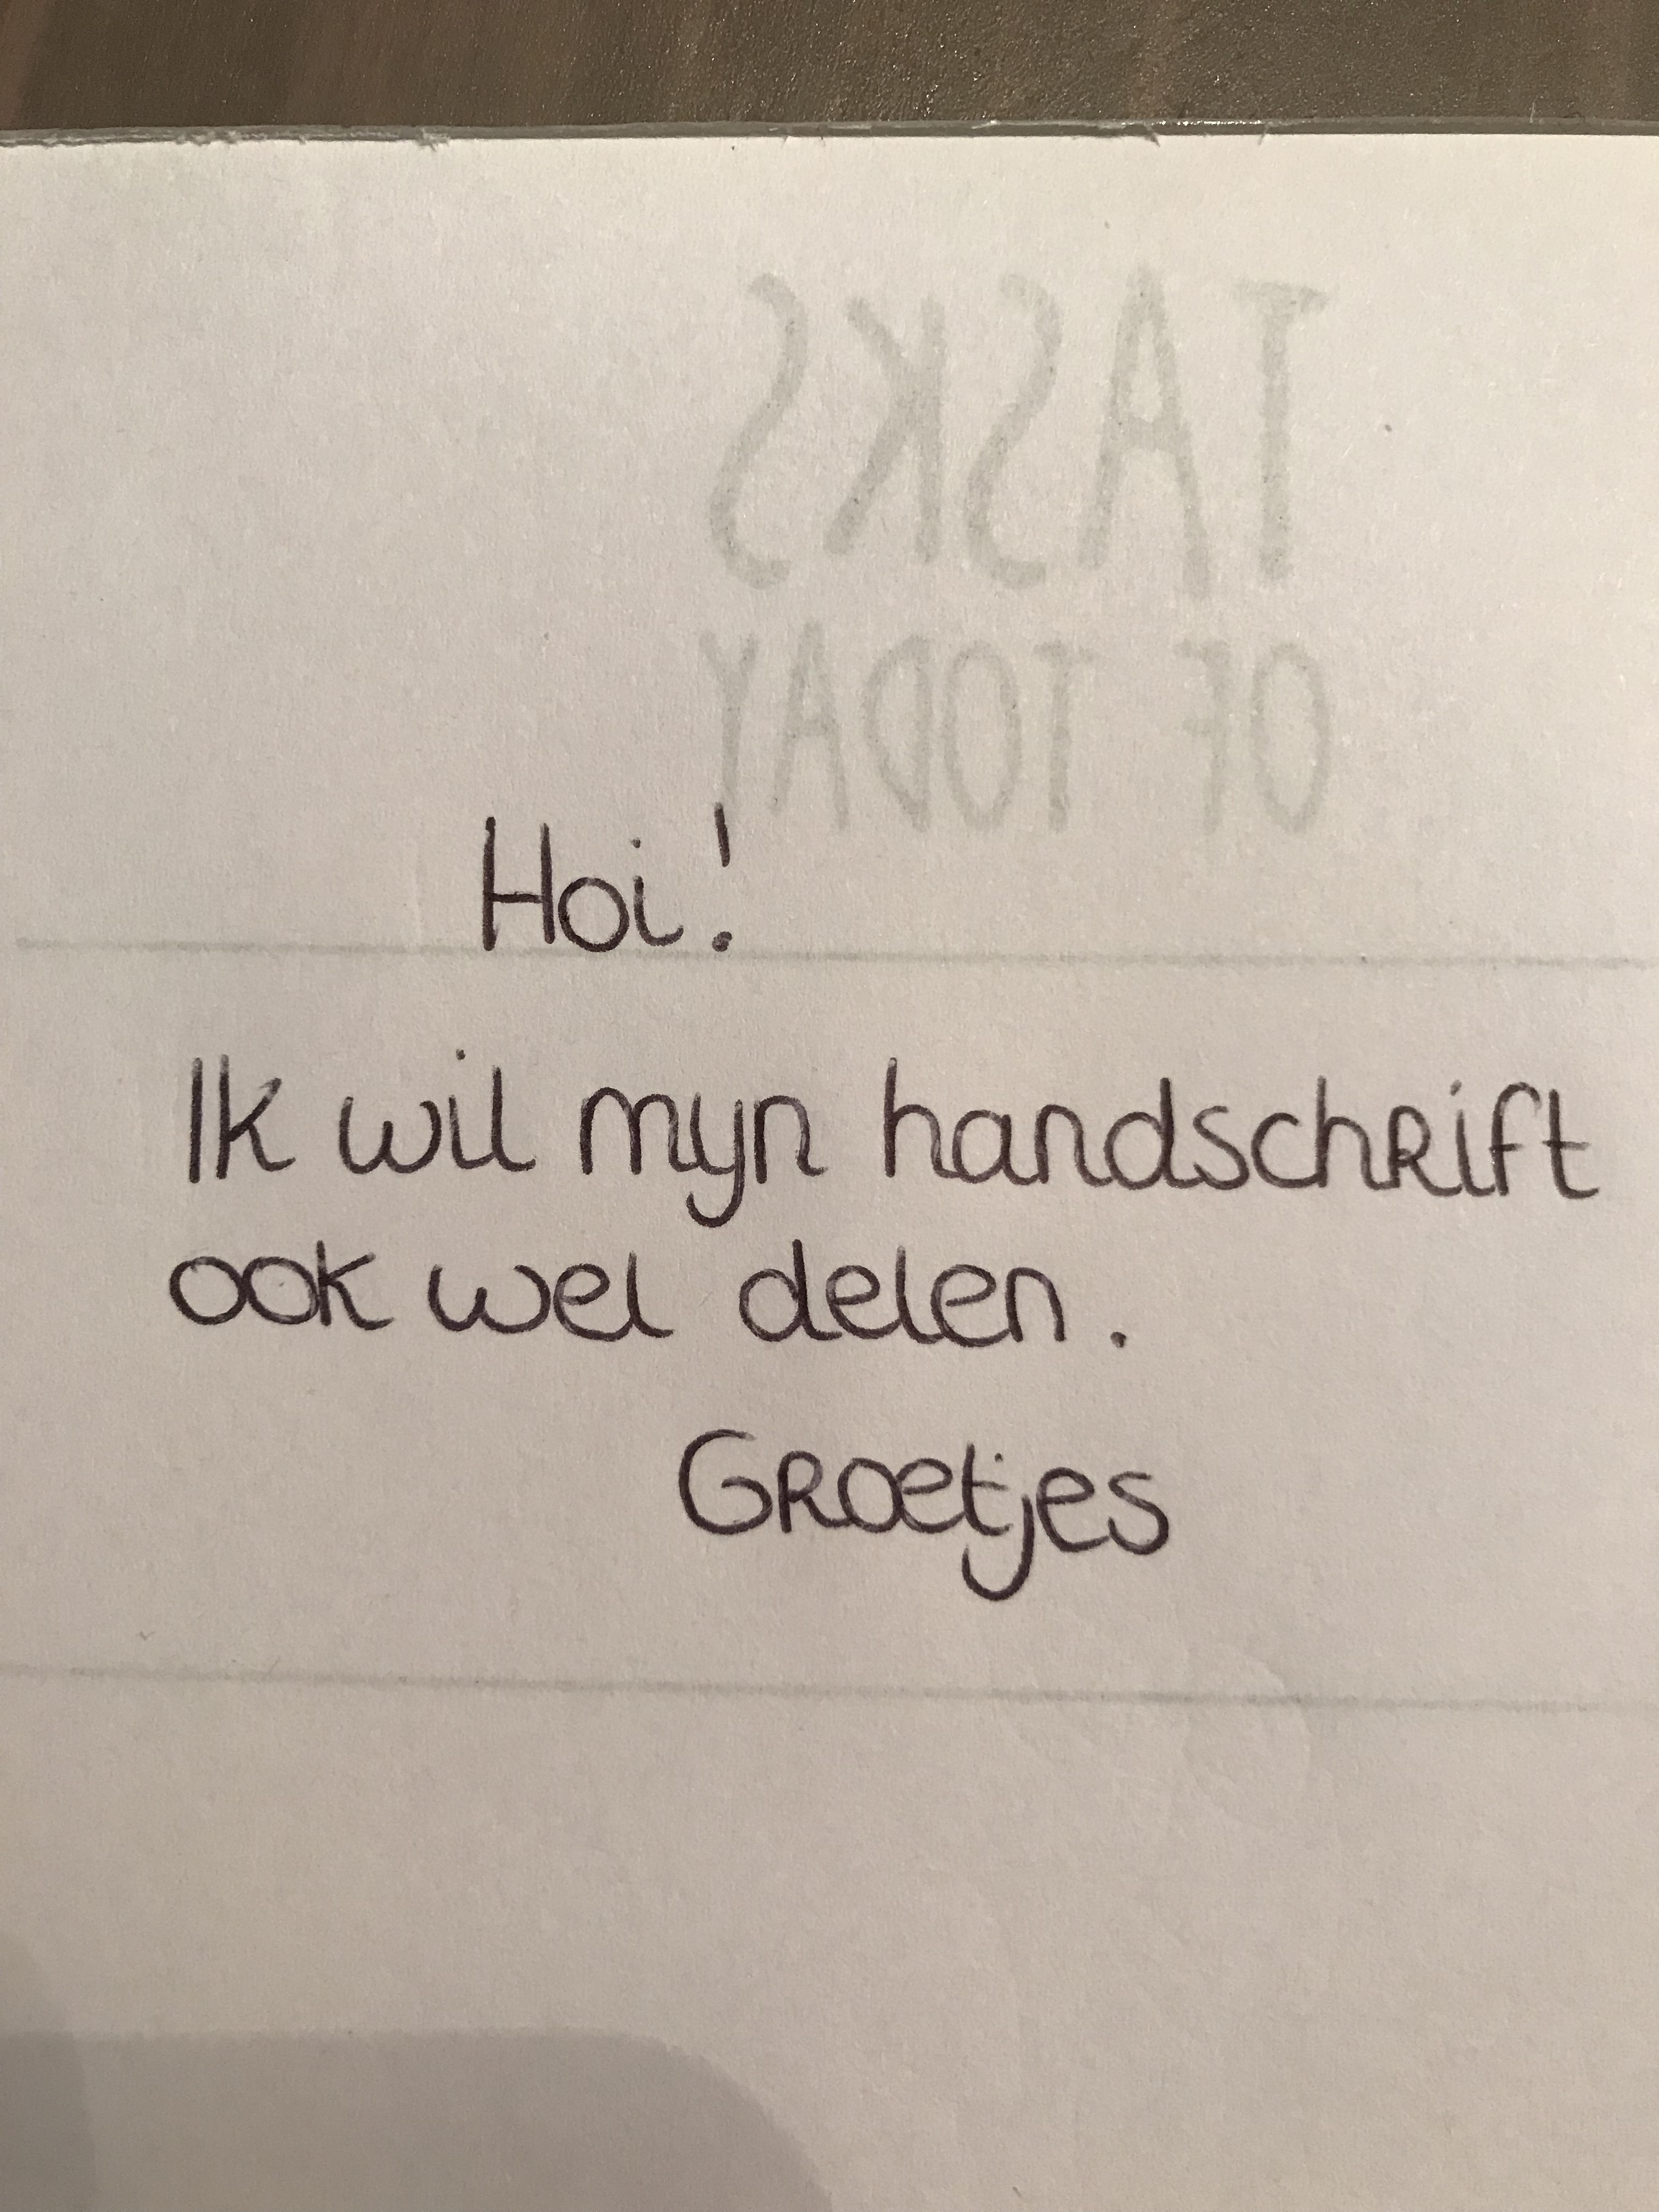 TASKS
OF TODAY
Hoi!
Ik wil myn handschrift
ook wel delen.
Groetjes